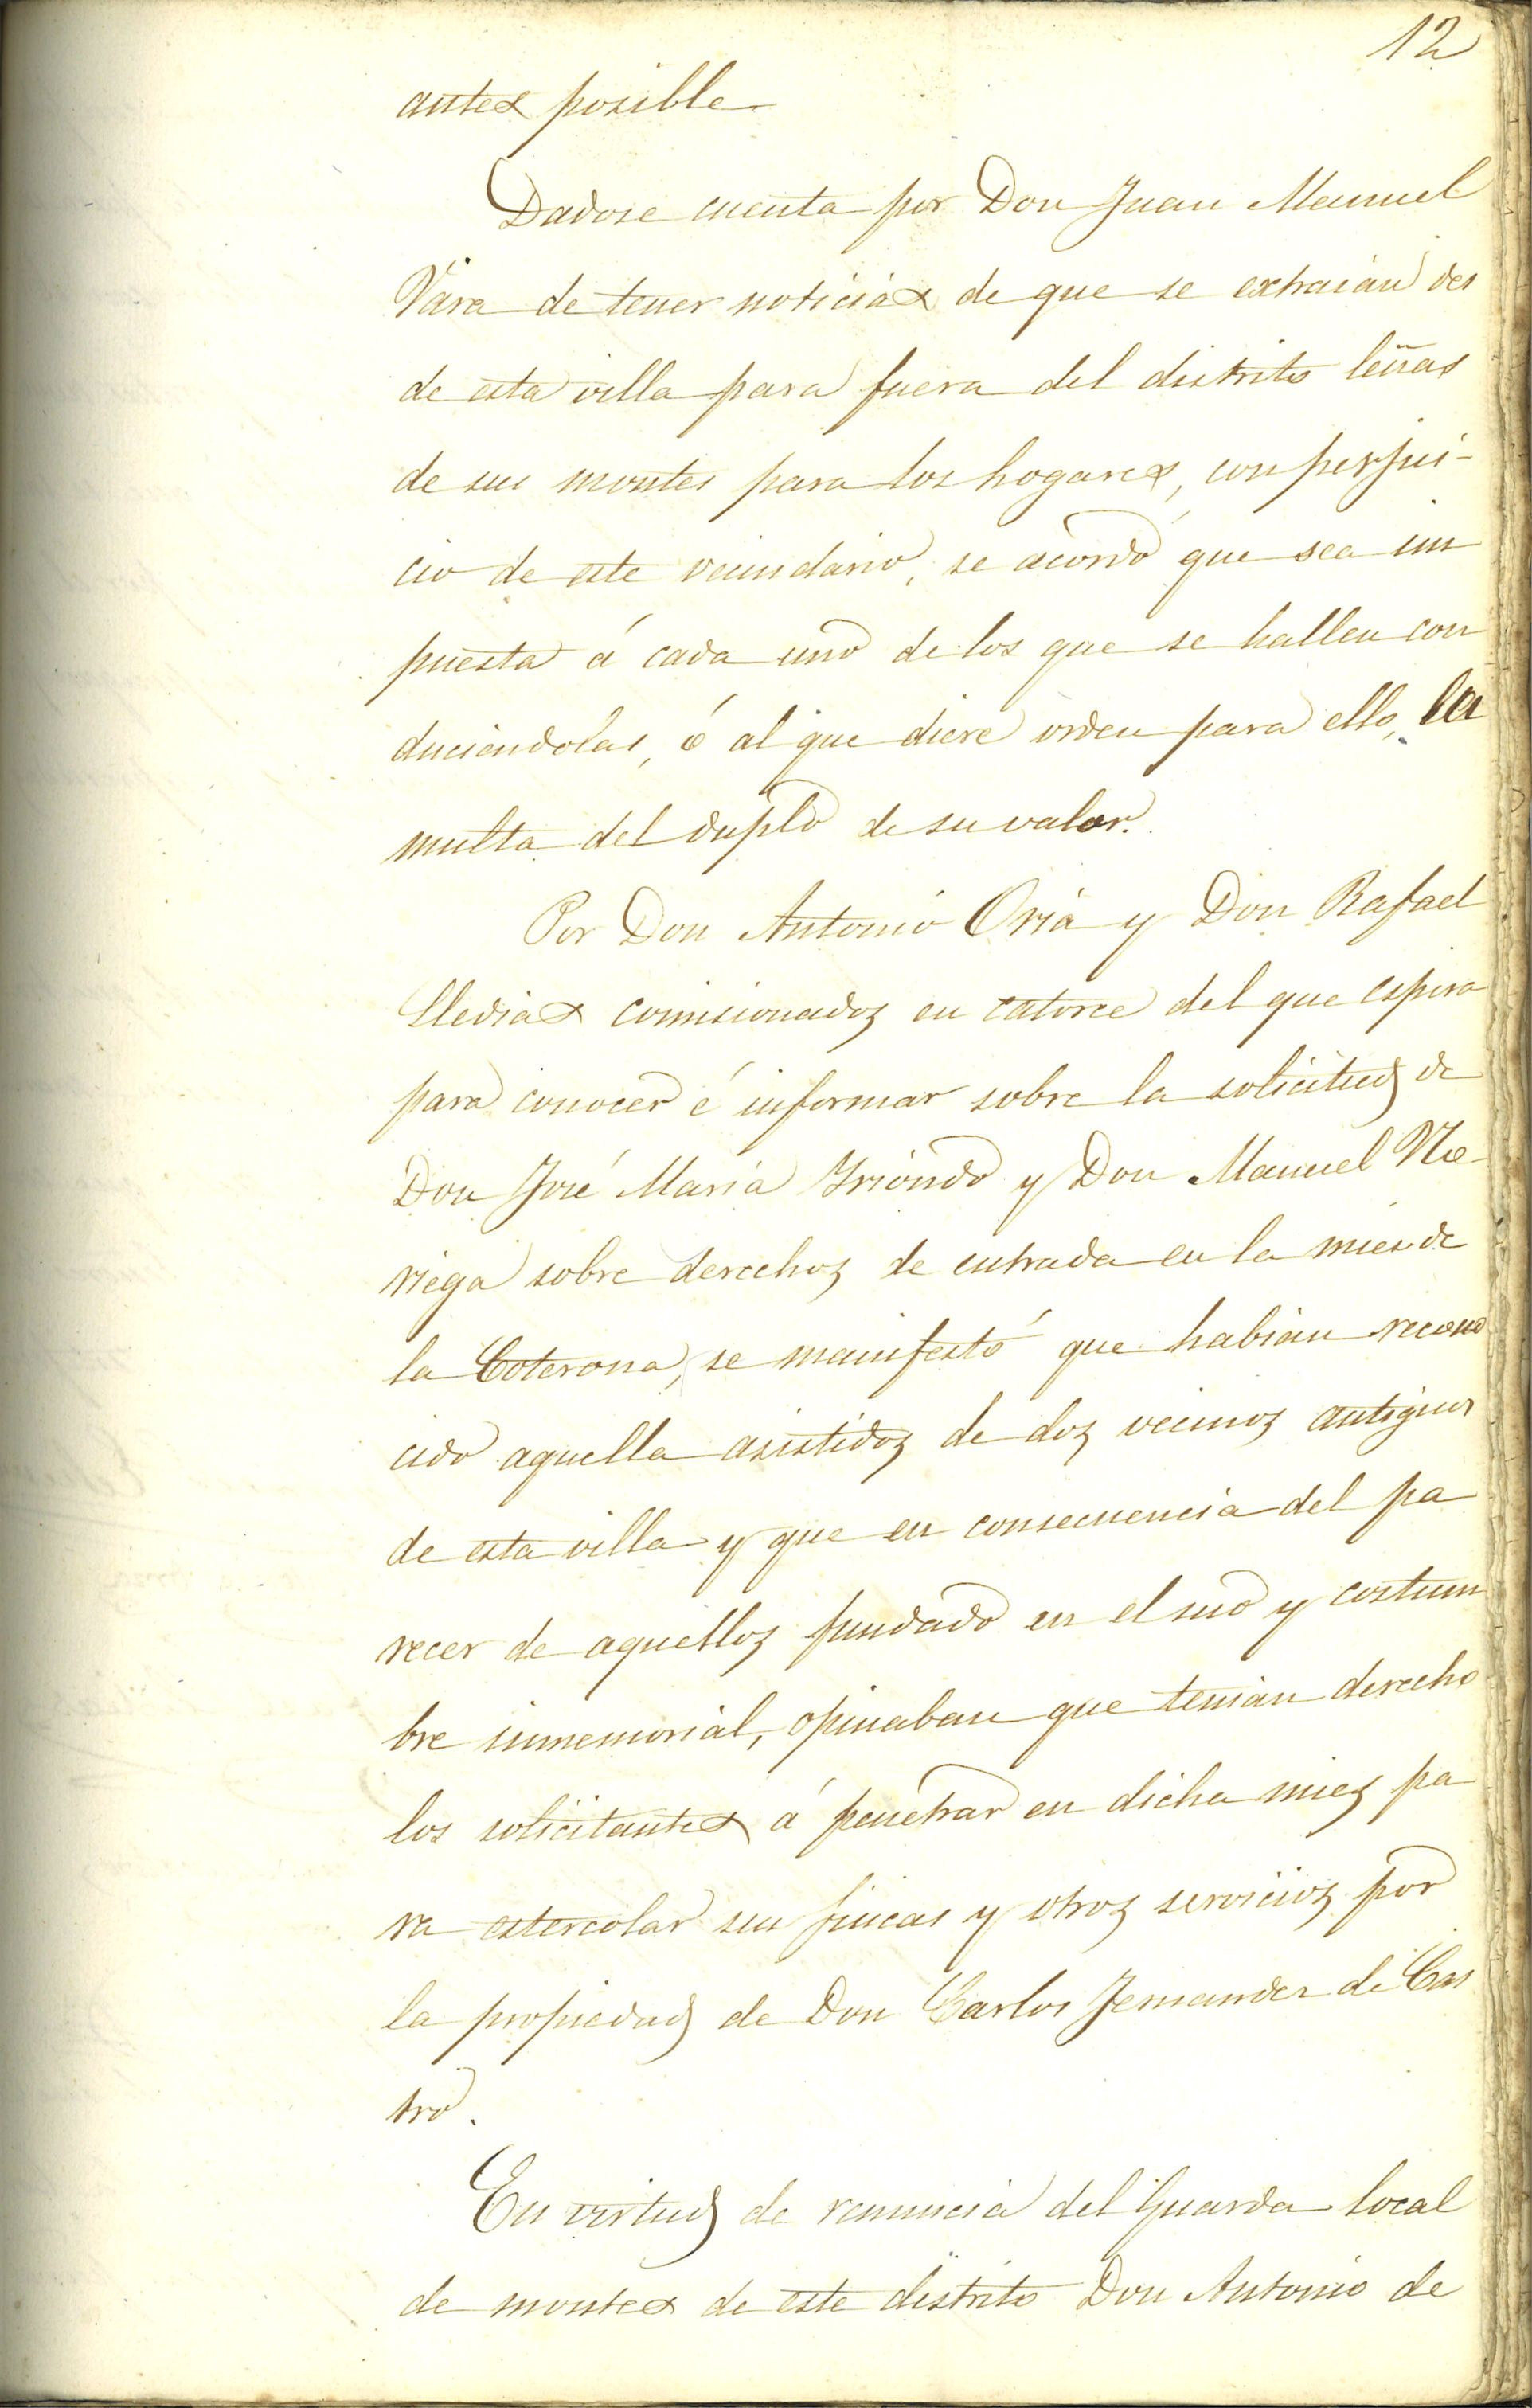 12
antes posible
Dadose cuenta por Don Juan Manuel
Vára de tener noticias de que se extraían des
de esta villa para fuera del distrito leñas
de sus montes para los hogares, con perjui-
cio de este vecindario, se acordó que sea im
puesta á cada uno de los que se hallen con
duciendolas, ó al que diere orden para ello, la
multa del duplo de su valor.
Por Don Antonio Oria y Don Rafael
Lledias comisionados en catorce del que espira
para conocer é informar sobre la solicitud de
Don José María Yriondo y Don Manuel No
riega sobre derechos de entrada en la mies de
la Coterona, se manifestó que habían recono
cido aquella asistidos de dos vecinos antiguos
de esta villa y que en consecuencia del pa
recer de aquellos fundado en el uso y costum
bre inmemorial, opinaban que tenían derecho
los solicitantes á penetrar en dicha mies pa
ra estercolar sus fincas y otros servicios por
la propiedad de Don Carlos Fernandez de Cas
tro.
En virtud de renuncia del Guarda local
de montes de este distrito Don Antonio de